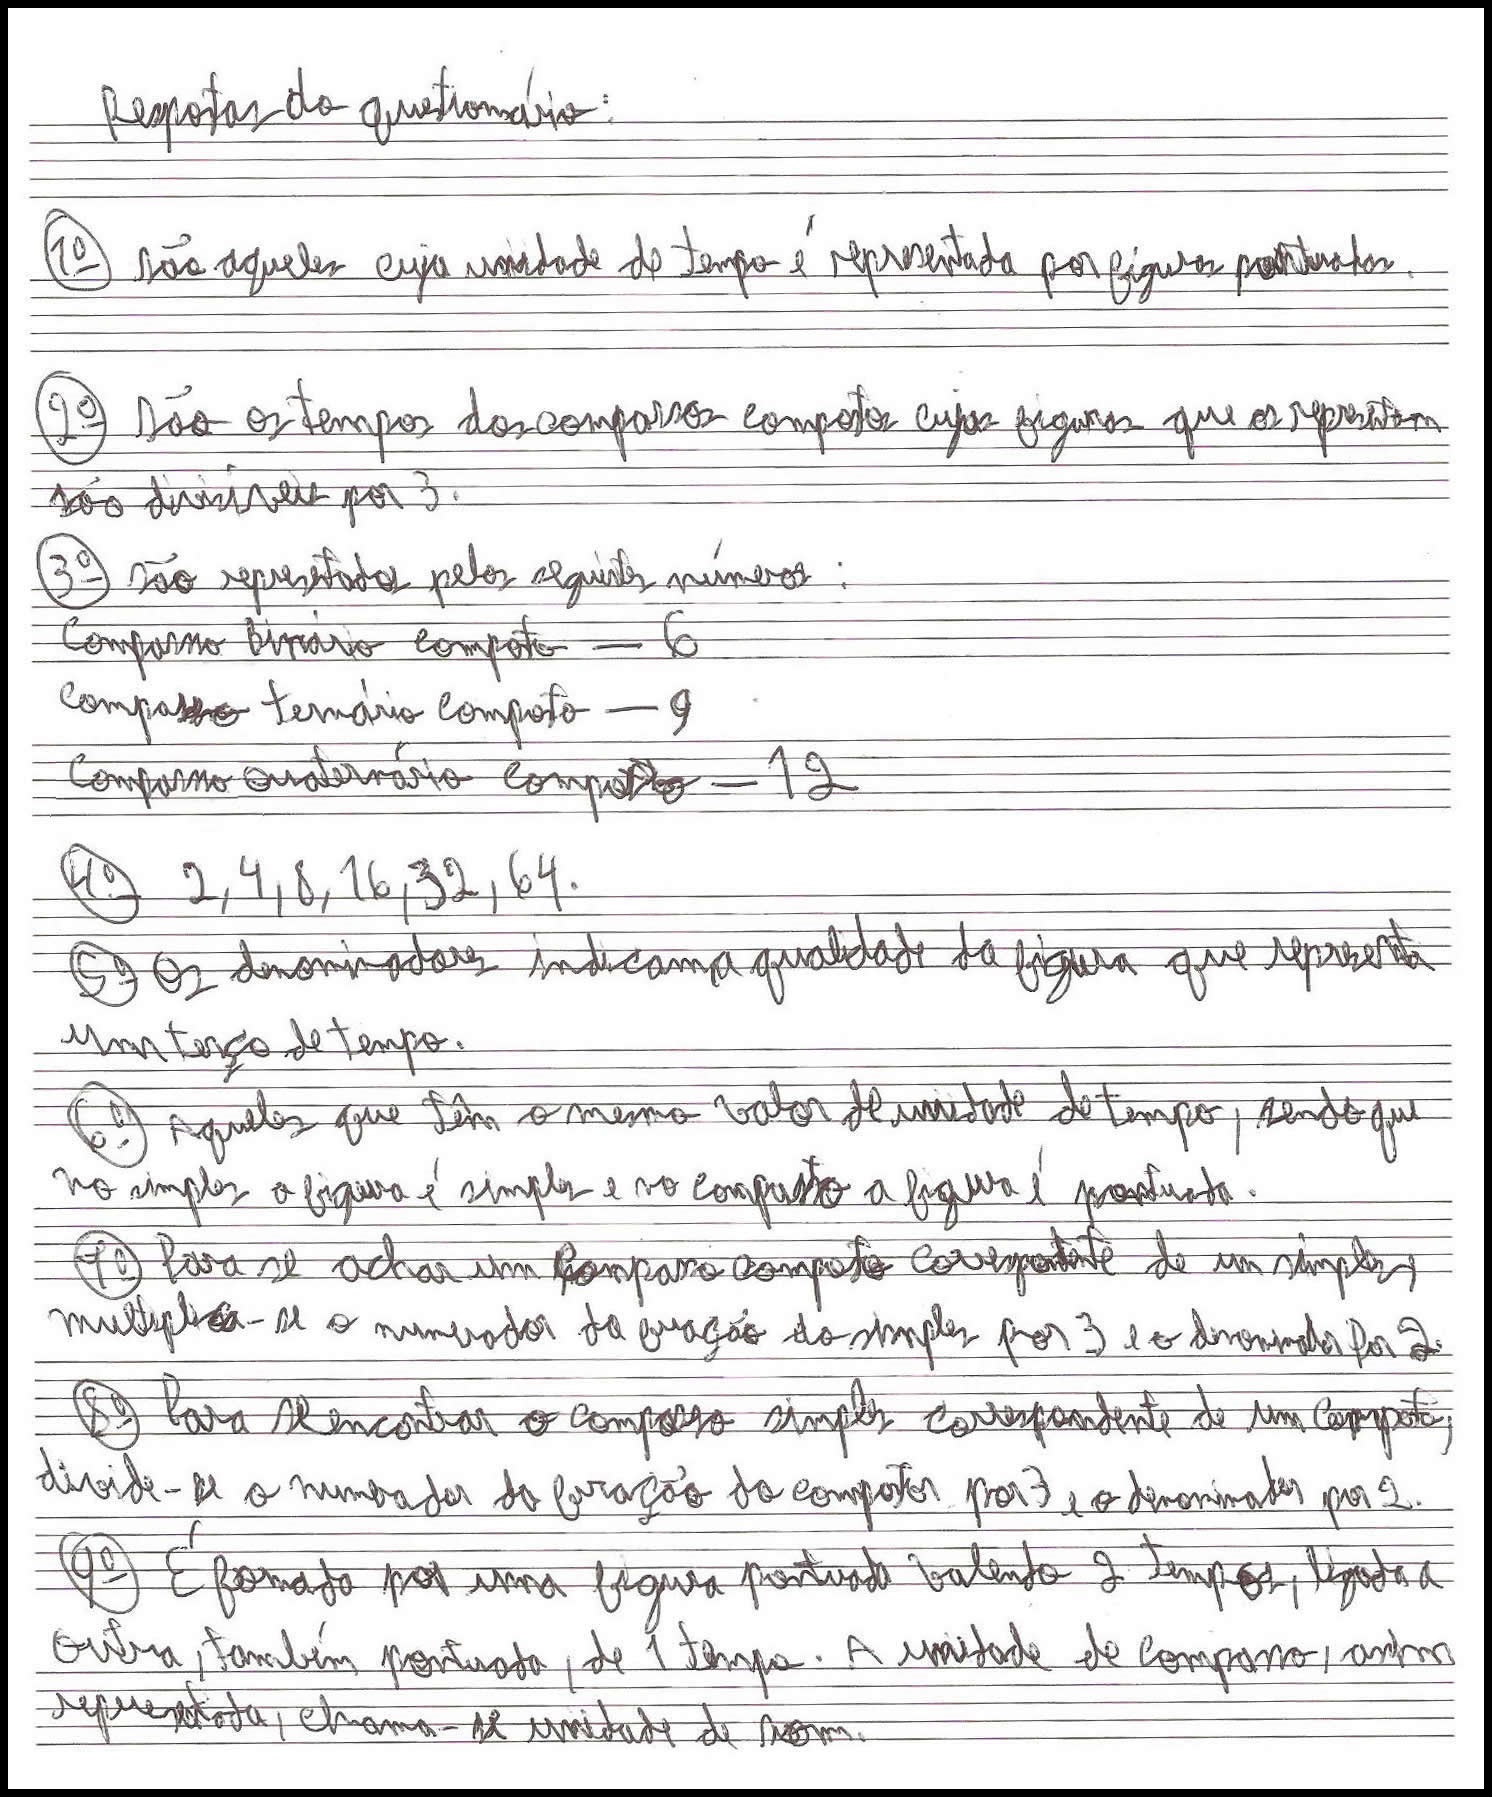 Respostas do questionário:
1º são aqueles cuja unidade de tempo é representada por figuras pontuadas.
2º São os tempos dos compassos compostos cujas figuras que os representam
são divisíveis por 3.
3º são representados pelos seguintes números:
Compasso Binário composto — 6
compasso ternário composto — 9
Compasso Quaternário composto — 12
4º 2, 4, 8, 16, 32, 64.
5º Os denominadores indicam a qualidade da figura que representa
um terço de tempo.
6º Aqueles que têm o mesmo valor de unidade de tempo, sendo que
no simples a figura é simples e no composto a figura é pontuada.
7º Para se achar um compasso composto correspondente de um simples,
multiplica-se o numerador da fração do simples por 3 e o denominador por 2.
8º Para se encontrar o compasso simples correspondente de um composto,
divide-se o numerador da fração do composto por 3 e o denominador por 2.
9º É formada por uma figura pontuada valendo 2 tempos, ligada a
outra, também pontuada, de 1 tempo. A unidade de compasso, assim
representada, chama-se unidade de som.